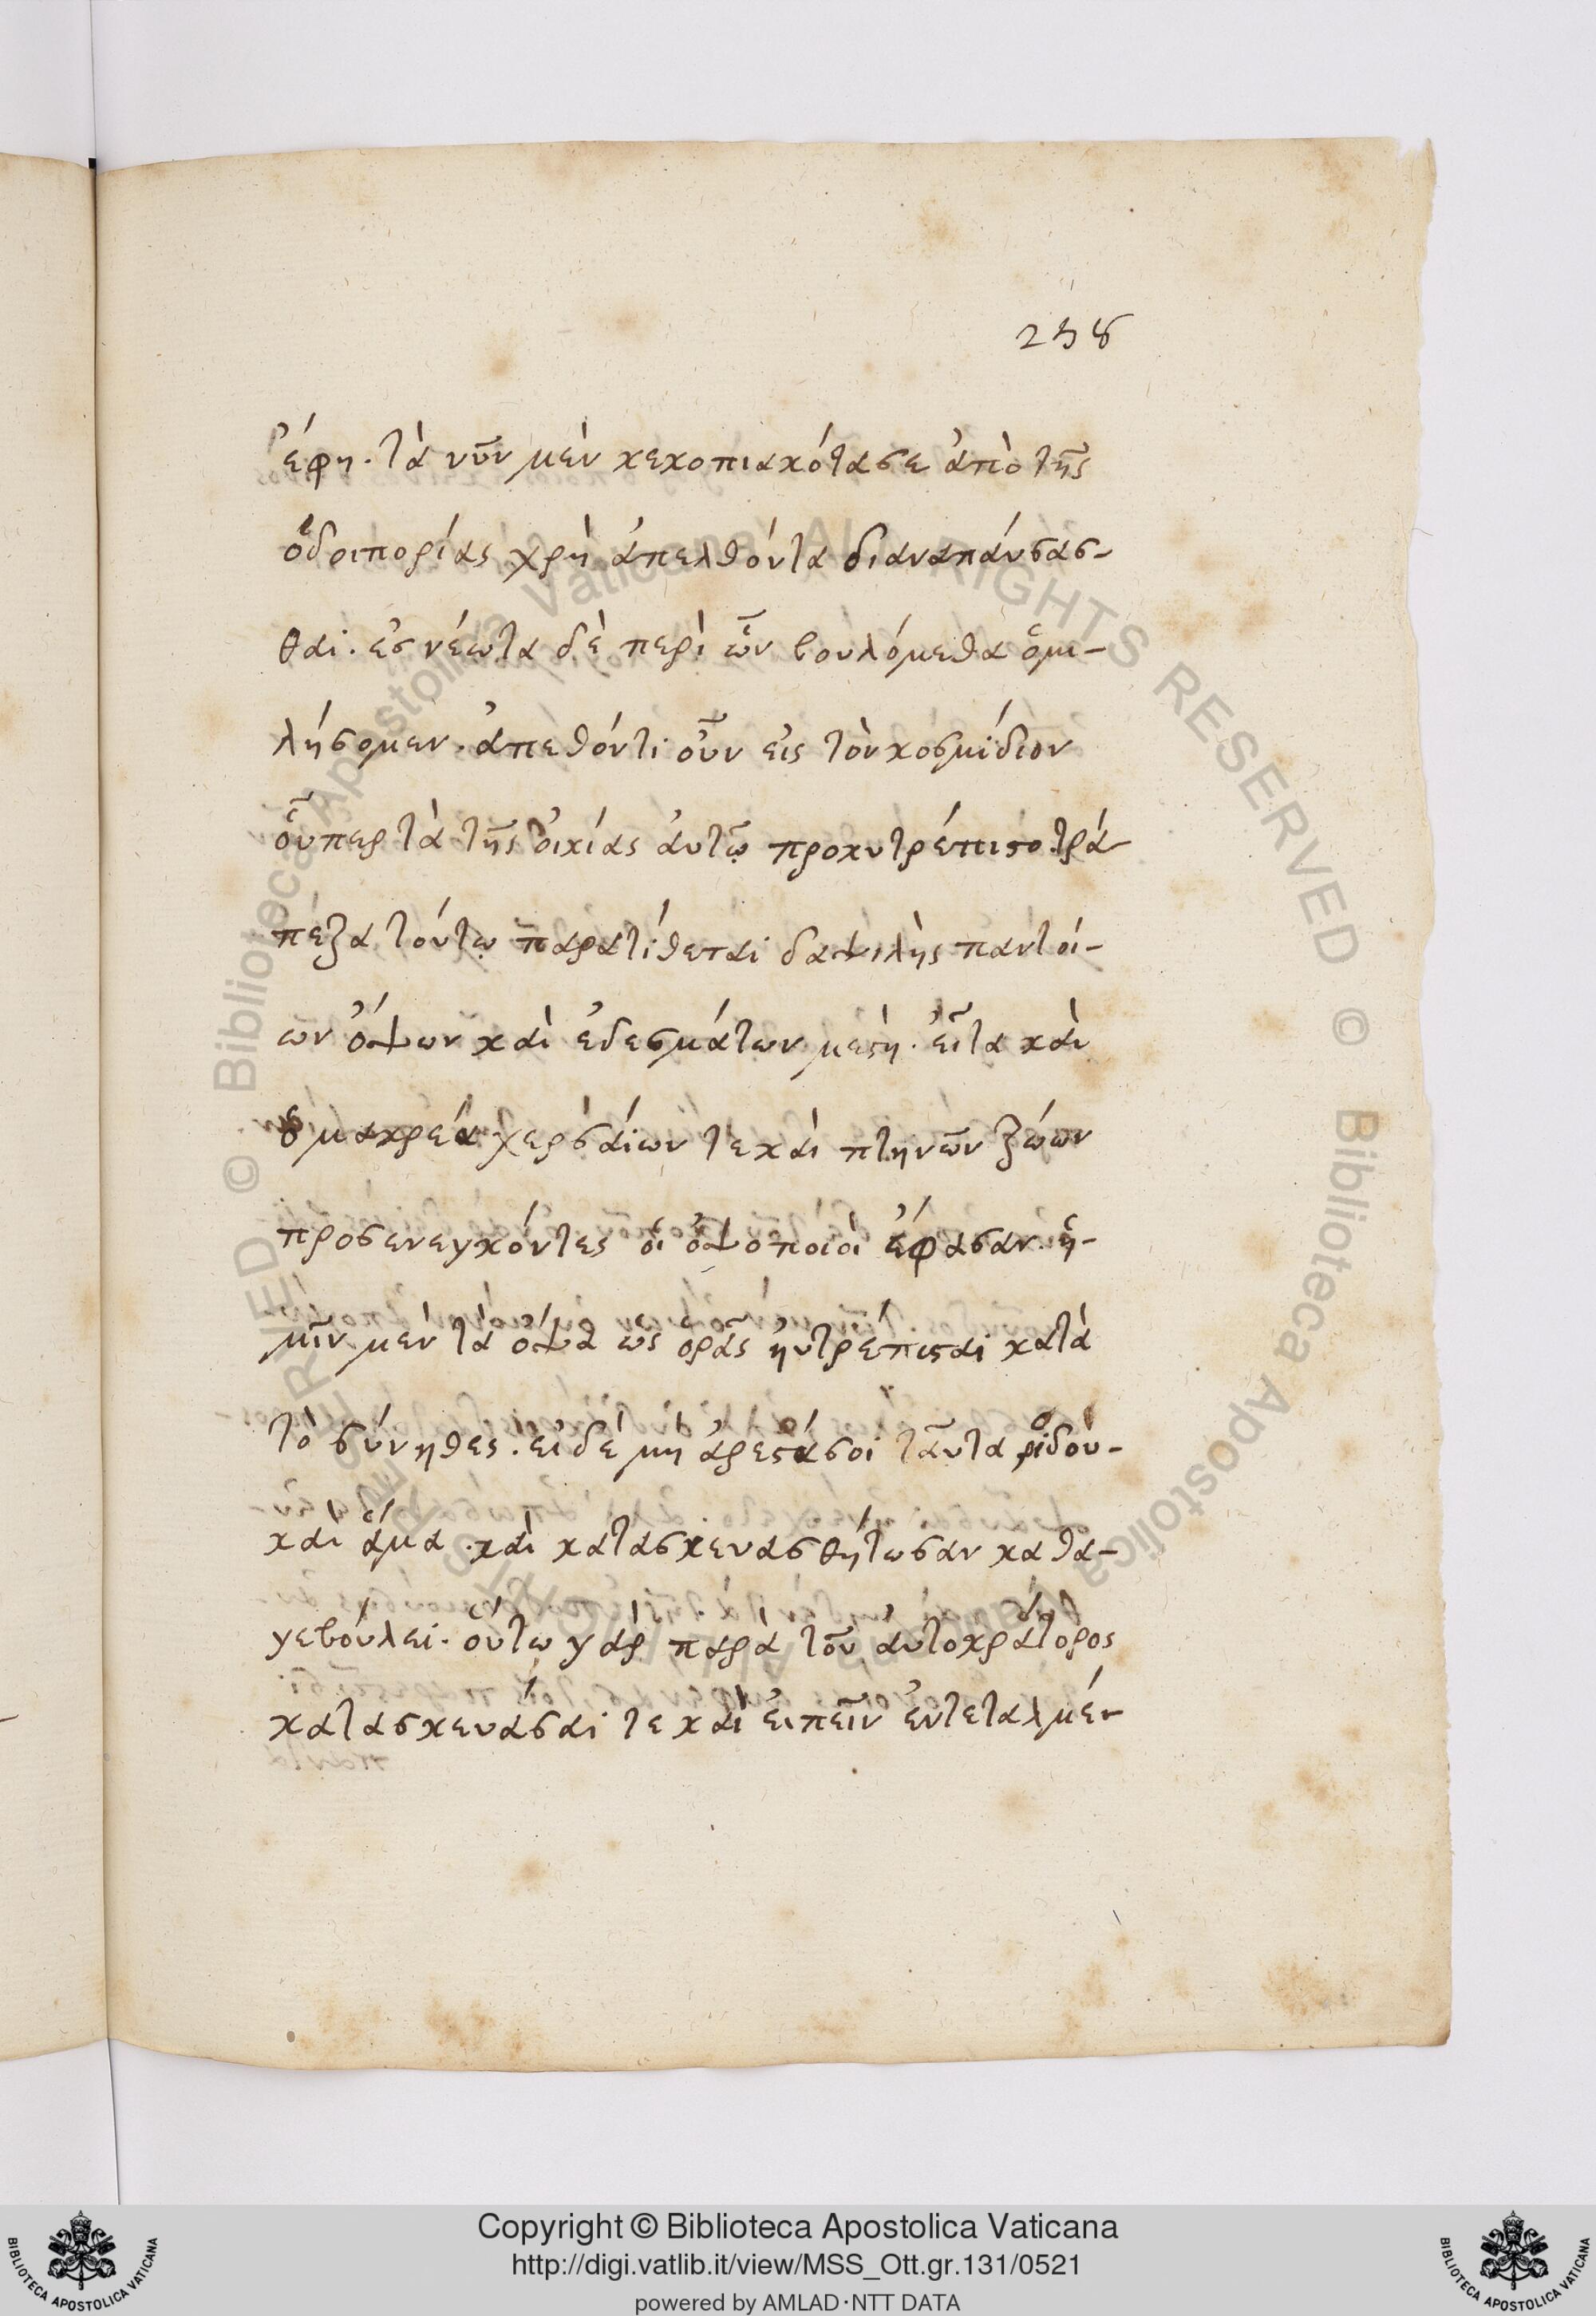 258
ἔφη. τὰ νῦν μὲν κεκοπιακότα σε ἀπὸ τῆς
ὁδοιπορίας χρὴ ἀπελθόντα διαναπαύσασ-
θαι. ἐσ νέωτα δὲ περὶ ὧν βουλόμεθα ὁμι-
λήσομεν. ἀπεθόντι οὖν εἰς τὸν κοσμίδιον
οὗπερ τὰ τῆς οἰκίας αὐτῷ προηυτρέπιστο. τρά-
πεζα τούτῳ παρατίθεται δαψιλὴς παντοί-
ων ὄψων καὶ ἐδεσμάτων μεστὴ. εἶτα καὶ
ὠμα κρέα χερσαίων τε καὶ πτηνῶν ζώων
προσενεγκόντες οἱ ὀψοποιοὶ ἔφασαν. ἡ-
μῖν μὲν τὰ ὄψα ὡς ὁρᾶς ηὐτρέπισται κατὰ
τὸ σύνηθες. εἰ δὲ μὴ ἀρεστά σοι ταῦτα ἰδοὺ-
καὶ ἅμα. καὶ κατασκευασθήτωσαν καθά-
γε βούλει. οὕτω γὰρ παρὰ τοῦ αὐτοκράτορος
κατασκευάσαι τε καὶ εἰπεῖν ἐντεταλμέ-
Copyright © Biblioteca Apostolica Vaticana
http://digi.vatlib.it/view/MSS_Ott.gr.131/0521
powered by AMLAD·NTT DATA
BIBLIOTECA APOSTOLICA VATICANA
BIBLIOTECA APOSTOLICA VATICANA
© Biblioteca Apostolica Vaticana ALL RIGHTS RESERVED © Biblioteca Apostolica Vaticana ALL RIGHTS RESERVED